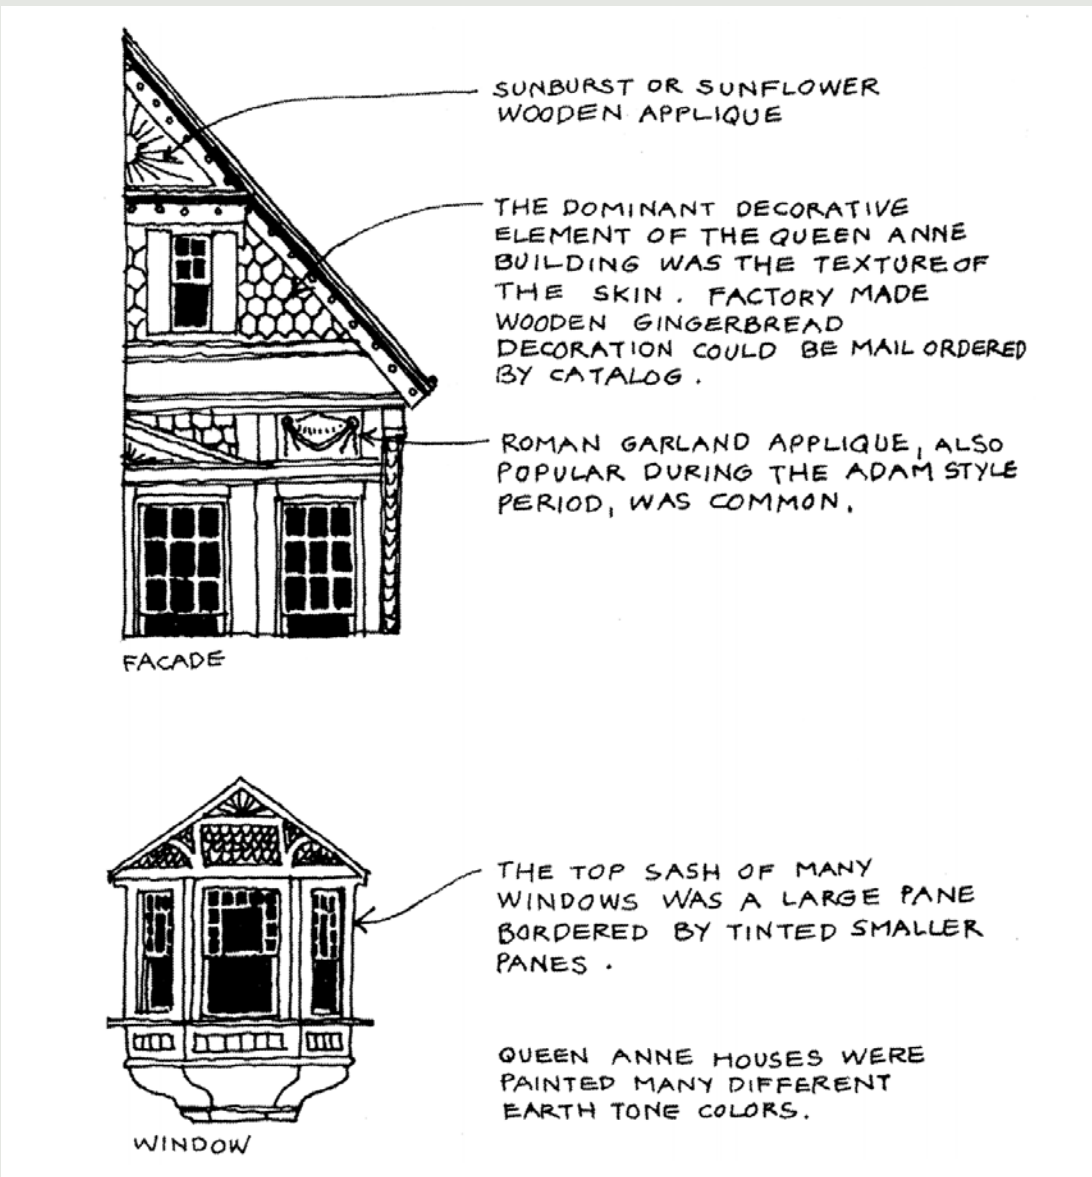 SUNBURST OR SUNFLOWER
WOODEN APPLIQUE
THE DOMINANT DECORATIVE
ELEMENT OF THE QUEEN ANNE
BUILDING WAS THE TEXTURE OF
THE SKIN. FACTORY MADE
WOODEN GINGERBREAD
DECORATION COULD BE MAIL ORDERED
BY CATALOG.
ROMAN GARLAND APPLIQUE, ALSO
POPULAR DURING THE ADAM STYLE
PERIOD, WAS COMMON.
FACADE
THE TOP SASH OF MANY
WINDOWS WAS A LARGE PANE
BORDERED BY TINTED SMALLER
PANES.
QUEEN ANNE HOUSES WERE
PAINTED MANY DIFFERENT
EARTH TONE COLORS.
WINDOW